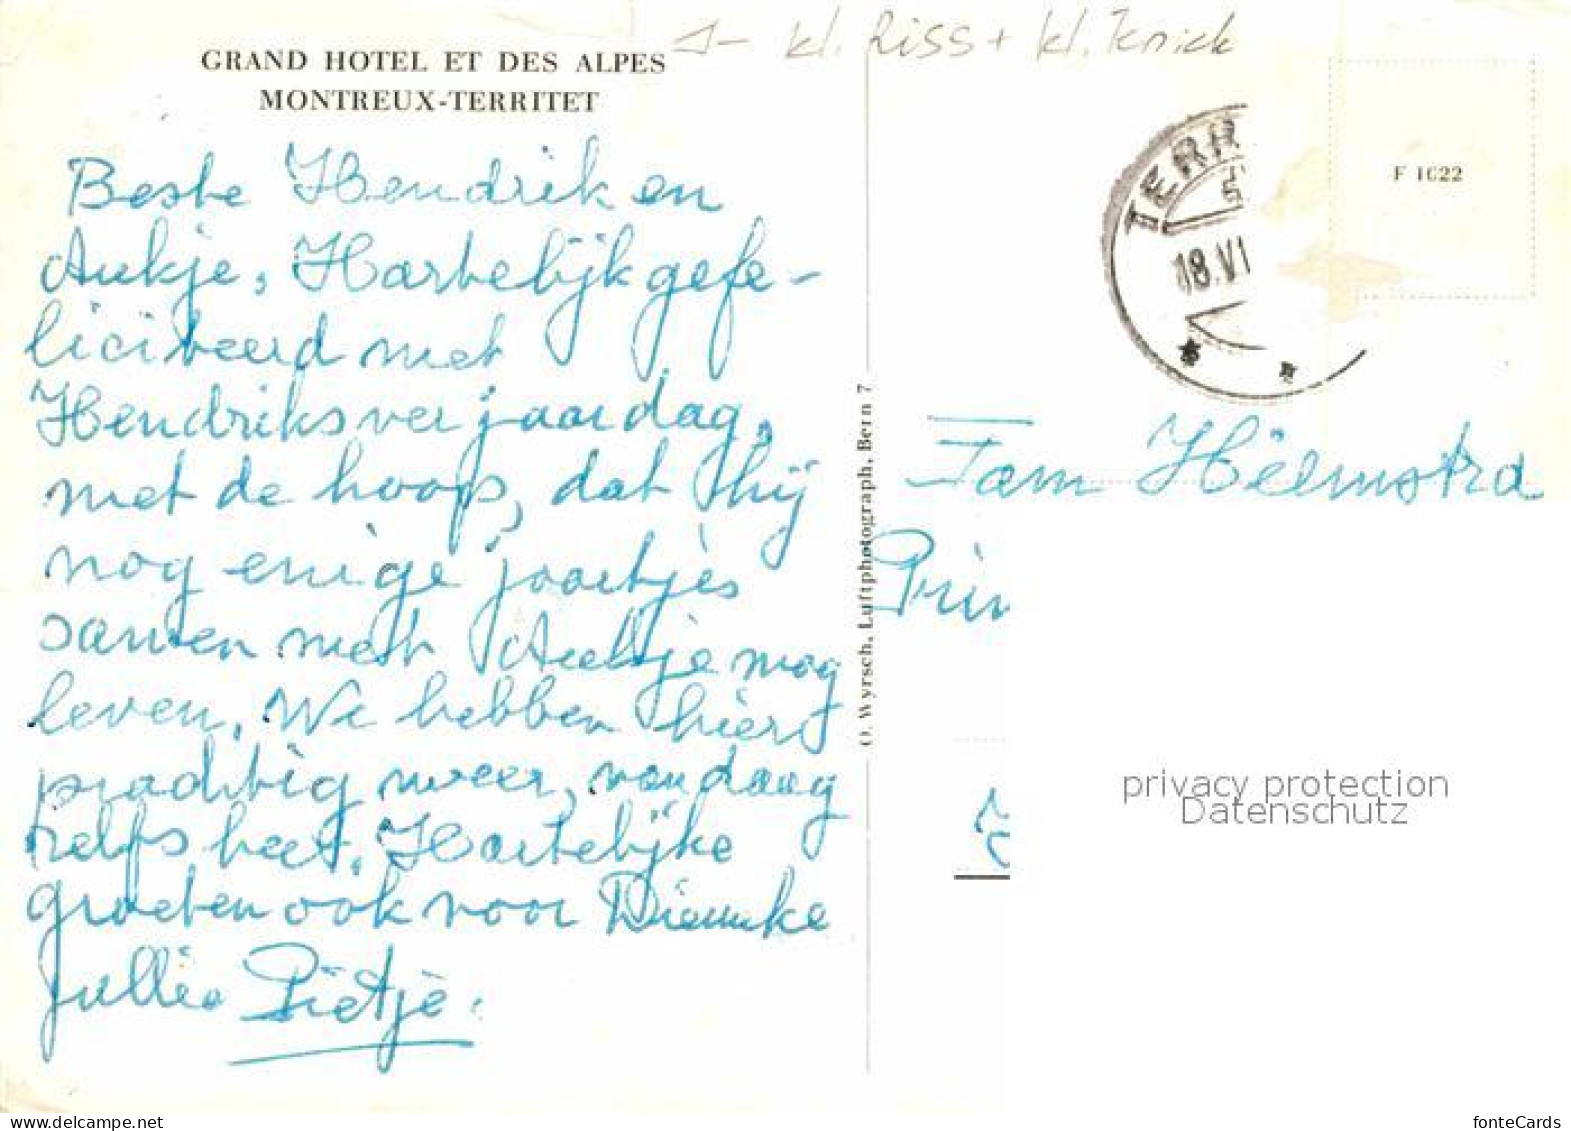 1- kl. Riss + kl. Knick
GRAND HOTEL ET DES ALPES
MONTREUX-TERRITET
Beste Hendrik en
Aukje, Hartelijk gefe-
liciteerd met
Hendriks verjaardag,
met de hoop, dat hij
nog enige jaartjes
samen met Aukje mag
leven. We hebben hier
prachtig weer, vandaag
zelfs heet. Hartelijke
groeten ook voor Dieuwke
jullie Pietje.
O. Wyrsch, Luftphotograph, Bern 7
TERR
18.VI
F 1022
Fam Hielmstra
Prin
privacy protection
Datenschutz
fonteCards